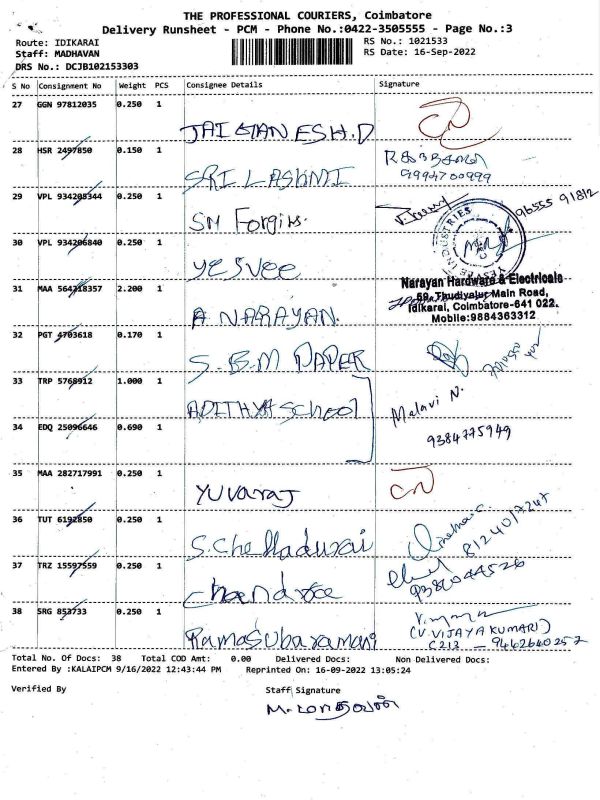 THE PROFESSIONAL COURIERS, Coimbatore
Delivery Runsheet - PCM - Phone No.:0422-3505555 - Page No.:3
Route: IDIKARAI
RS No.: 1021533
Staff: MADHAVAN
RS Date: 16-Sep-2022
DRS No.: DCJB102153303
S No Consignment No Weight PCS Consignee Details Signature
27 GGN 97812035 0.250 1
JAI GANESH.D
28 HSR 2497850 0.150 1
SRI LASHMI
9994700999
29 VPL 934208344 0.250 1
SM Forgins.
96555 91812
30 VPL 934206840 0.250 1
YESVEE
YESVEE INDUSTRIES
31 MAA 564218357 2.200 1
A NARAYAN.
Narayan Hardware & Electricals
69, Thudiyalur Main Road,
Idikarai, Coimbatore-641 022.
Mobile:9884363312
32 PGT 4703618 0.170 1
S.B.M PAPER
33 TRP 5768912 1.000 1
ADITHYA School
Malavi N.
34 EDQ 25096646 0.690 1
9384775949
35 MAA 282717991 0.250 1
Yuvaraj
36 TUT 6192850 0.250 1
S.Chelladurai
8124017247
37 TRZ 15597559 0.250 1
9380044526
38 SRG 853733 0.250 1
Ramasubaramani
(V.VIJAYA KUMARI)
C213 - 9462640257
Total No. Of Docs: 38 Total COD Amt: 0.00 Delivered Docs: Non Delivered Docs:
Entered By :KALAIPCM 9/16/2022 12:43:44 PM Reprinted On: 16-09-2022 13:05:24
Verified By Staff Signature
M.மாதவன்